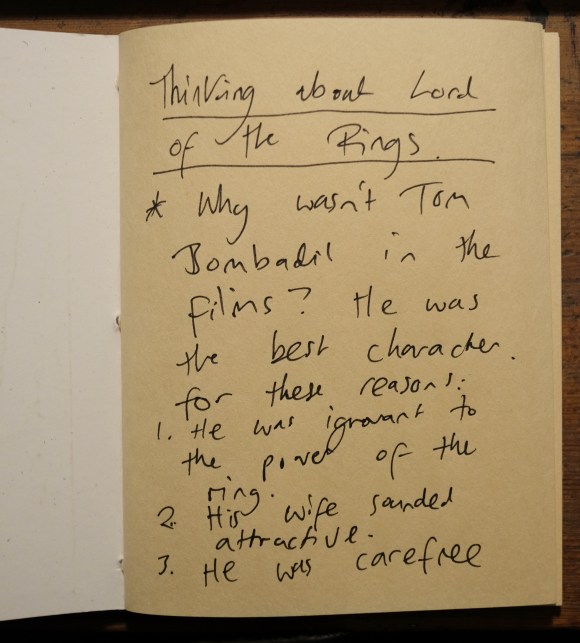 Thinking about Lord
of the Rings.
* Why wasn't Tom
Bombadil in the
films? He was
the best character.
for these reasons:
1. He was ignorant to
the power of the
ring.
2. His wife sanded
attractive.
3. He was carefree